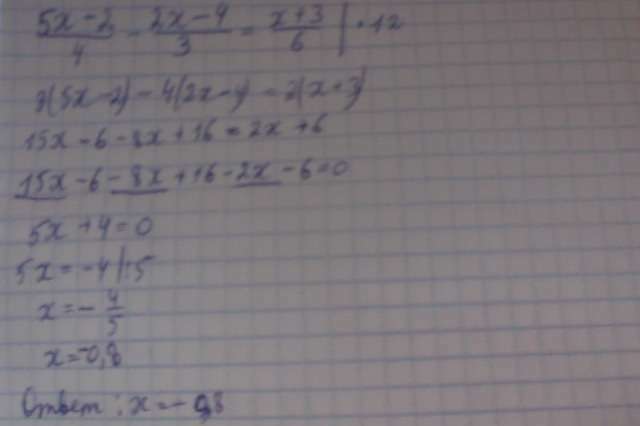 (5x-2)/4 - (2x-4)/3 = (x+3)/6 | ·12
3(5x-2) - 4(2x-4) = 2(x+3)
15x - 6 - 8x + 16 = 2x + 6
15x - 6 - 8x + 16 - 2x - 6 = 0
5x + 4 = 0
5x = -4 | :5
x = - 4/5
x = -0,8
Ответ: x = -0,8